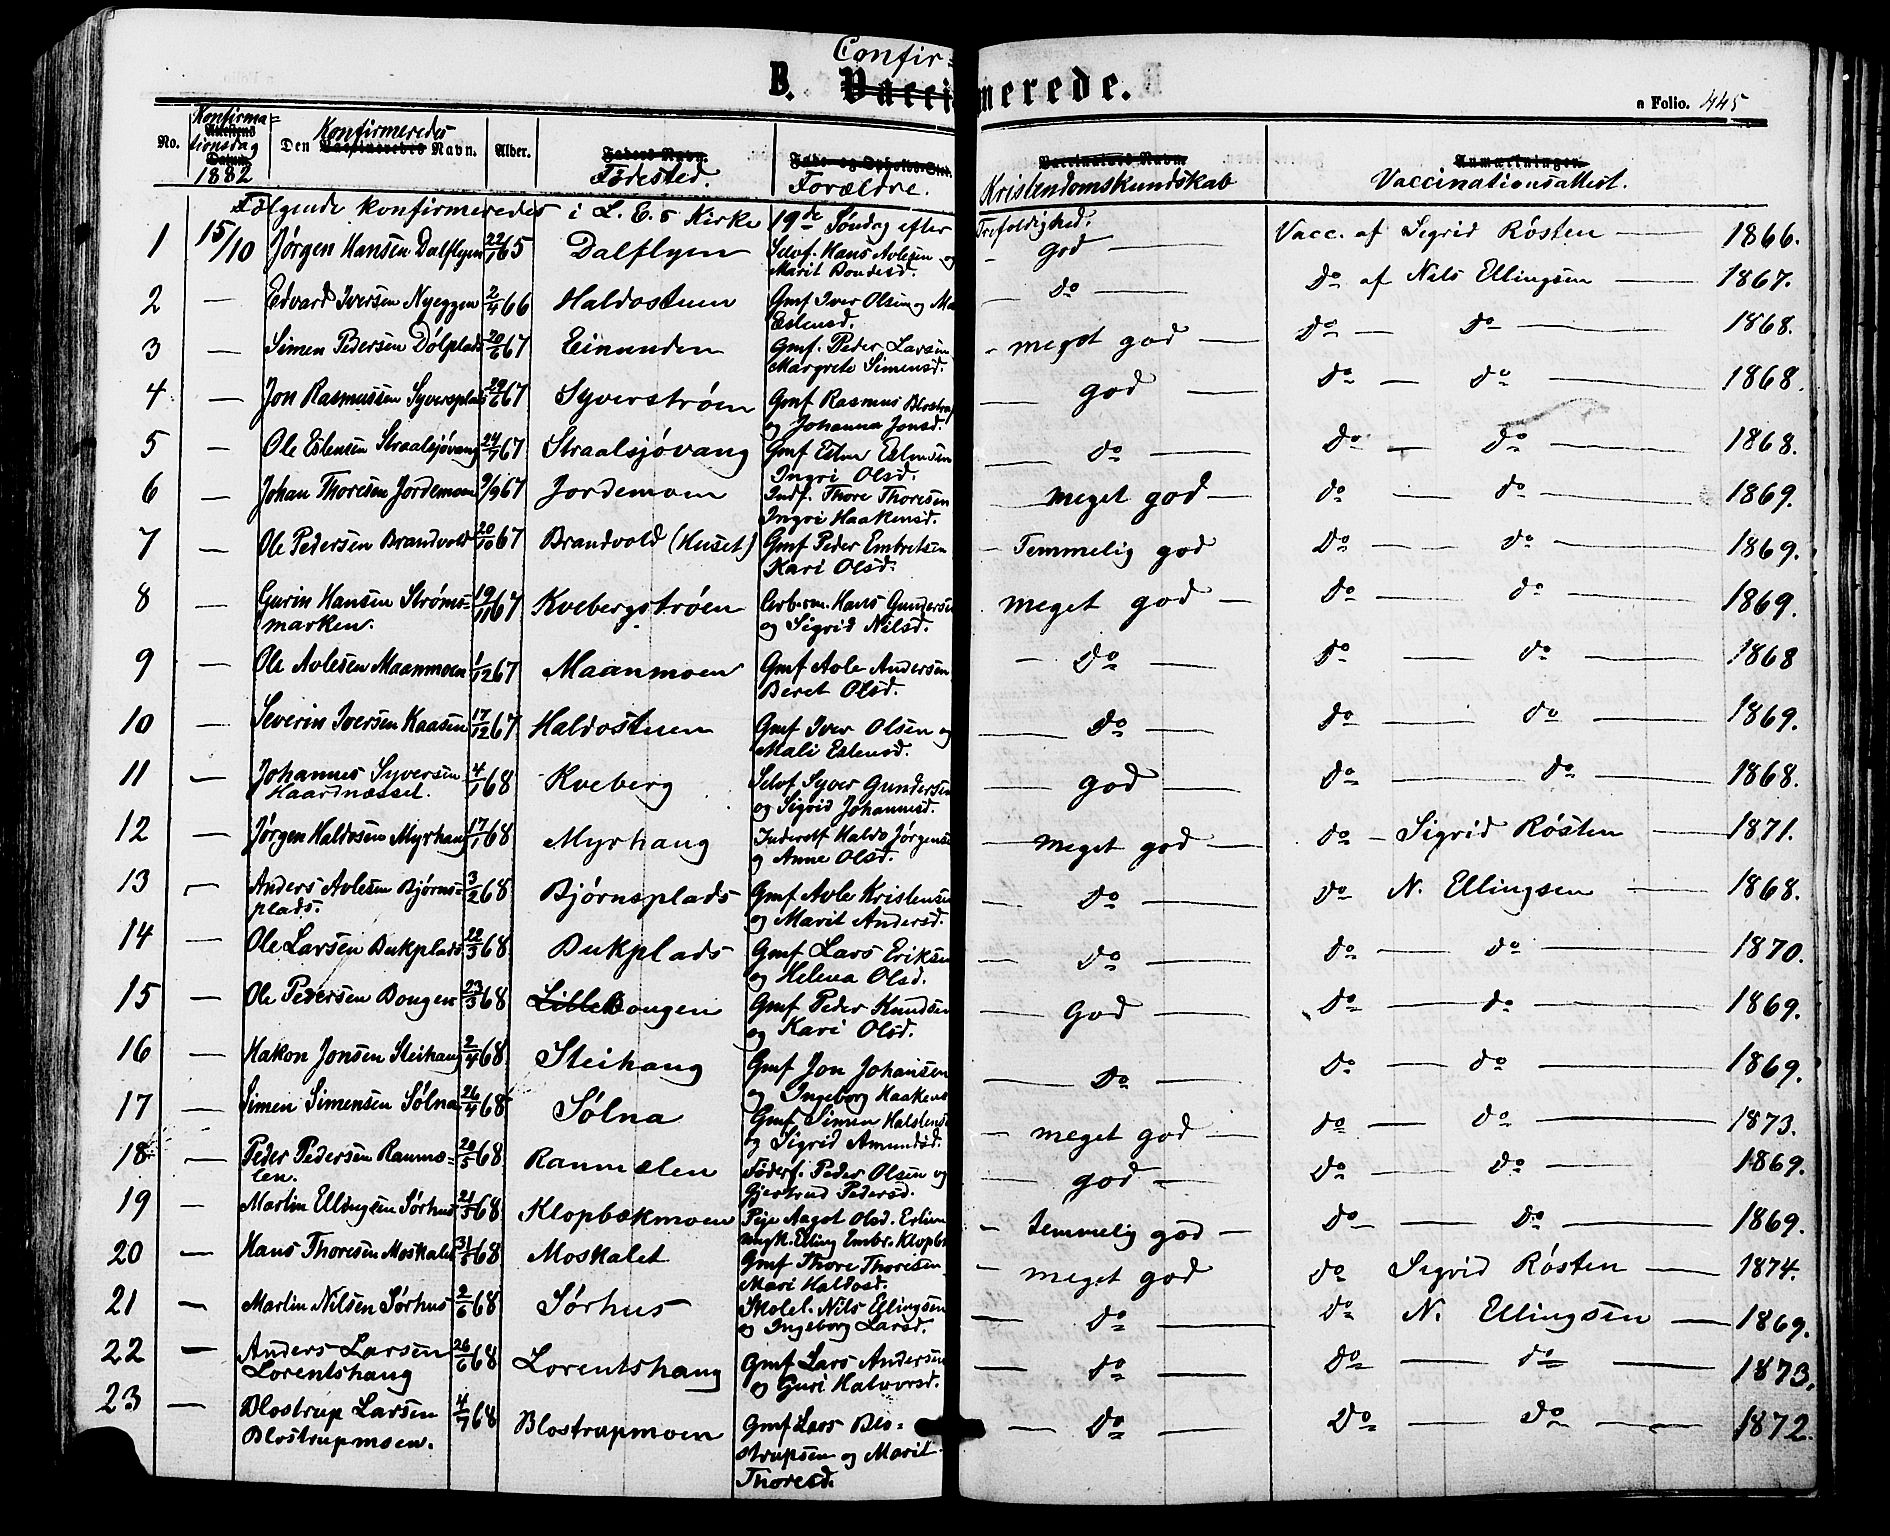 Confir=
B. Vaccinerede.
a Folio. 445
No. Konfirma= Attestens tionsdag Datum. 1882 Den Konfirmeredes Vaccineredes Navn. Alder. Faders Navn. Fødested. Føde- og Opholds-Sted. Forældre. Vaccinators Navn. Kristendomskundskab Anmærkninger. Vaccinationsattest.
Følgende konfirmeredes i L. E.s Kirke 19de Søndag efter Trefoldighed.
1 15/10 Jørgen Hansen Dalflyen 22/1 65 Dalflyen Selvf. Hans Avlesen og Marit Bondesd. god Vacc. af Sigrid Røsten 1866.
2 — Edvard Iversen Nyeggen 2/4 66 Haldostuen Gmf Iver Olsen og Ma Eslensd. do do af Nils Ellingsen 1867.
3 — Simen Pedersen Dølplads 20/6 67 Einunden Gmf. Peder Larsen Margrete Simensd. meget god do do 1868.
4 — Jon Rasmussen Syversplads 29/6 67 Syverstrøen Gmf Rasmus Blostru og Johanna Jonsd. god do do 1868.
5 — Ole Eslensen Straalsjøvang 24/7 67 Straalsjøvang Gmf Eslen Eslensen Ingri Olsd. do do do 1868.
6 — Johan Thoresen Jordemoen 9/9 67 Jordemoen Indf. Thore Thoresen Ingri Haakensd. meget god do do 1869.
7 — Ole Pedersen Brandvold 20/10 67 Brandvold (Huset) Gmf Peder Embretsen Kari Olsd. Temmelig god do do 1869.
8 — Gurin Hansen Strøms= marken. 19/11 67 Kvebergstrøen Arberm. Hans Gundersen og Sigrid Nilsd. meget god do do 1869.
9 — Ole Avlesen Maanmoen 1/12 67 Maanmoen Gmf Avle Andersen Beret Olsd. do do do 1868
10 — Severin Iversen Kaasen 17/12 67 Haldostuen Gmf Iver Olsen og Mali Eslensd. do do do 1869.
11 — Johannes Syversen Haardnæsset. 4/1 68 Kveberg Selvf Syver Gundersen og Sigrid Johannesd. god do do 1868.
12 — Jørgen Haldosen Myrhaug 17/1 68 Myrhaug Inderstf Haldo Jørgensen og Anne Olsd. meget god do Sigrid Røsten 1871.
13 — Anders Avlesen Bjørns= plads. 3/2 68 Bjørnsplads Gmf Avle Kristensen og Marit Andersd. do do N. Ellingsen 1868.
14 — Ole Larsen Bukplads 22/3 68 Bukplads Gmf Lars Eriksen og Helena Olsd. do do do 1870.
15 — Ole Pedersen Bougen 23/3 68 LilleBougen Gmf Peder Knudsen og Kari Olsd. God do do 1869.
16 — Hakon Jonsen Steihaug 2/4 68 Steihaug Gmf Jon Johansen og Ingeborg Haakens do do do 1869.
17 — Simen Simensen Sølna 26/4 68 Sølna Gmf Simen Halstens og Sigrid Amundsd. meget god do do 1873.
18 — Peder Pedersen Raumæ= len. 20/5 68 Raumælen Føderf. Peder Olsen og Gjertrud Pedersd. god do do 1869.
19 — Martin Ellingsen Sørhus 21/5 68 Klopbækmoen Pige Aagot Olsd. Erlien Ungk. Elling Embr. Klopb temmelig god do do 1869.
20 — Hans Thoresen Moskalet 31/5 68 Moskalet Gmf Thore Thoresen Mari Haldosd. meget god do Sigrid Røsten 1874.
21 — Martin Nilsen Sørhus 2/6 68 Sørhus Skolel. Nils Ellingsen og Ingeborg Larsd. do do N. Ellingsen 1869.
22 — Anders Larsen Lorentshaug 26/6 68 Lorentshaug Gmf Lars Andersen og Guri Halvorsd. do do do 1873.
23 — Blostrup Larsen Blostrupmoen. 4/7 68 Blostrupmoen Gmf Lars Blo= strupsen og Marit Thoresd. do do do 1872.